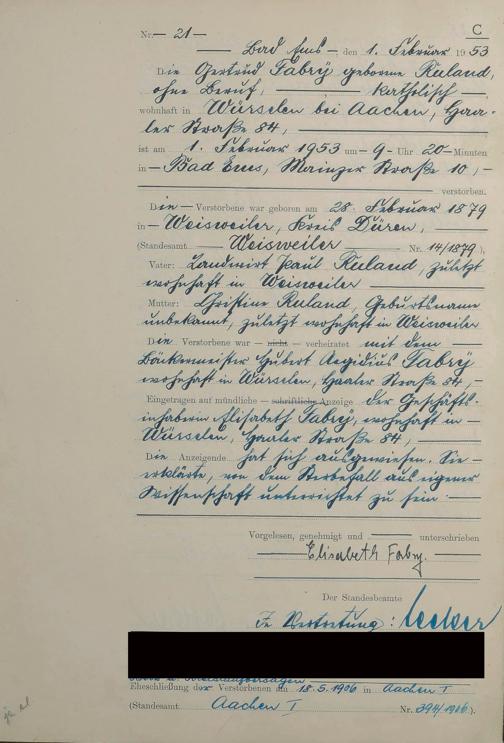 C
Nr. 21
Bad Ems, den 1. Februar 1953
Die Gertrud Fabry geborene Ruland,
ohne Beruf, katholisch
wohnhaft in Würselen bei Aachen, Haa-
ler Straße 84,
ist am 1. Februar 1953 um 9 Uhr 20 Minuten
in Bad Ems, Mainzer Straße 10,
verstorben.
Die Verstorbene war geboren am 28. Februar 1879
in Weisweiler, Kreis Düren,
(Standesamt Weisweiler Nr. 14/1879),
Vater: Landwirt Paul Ruland, zuletzt
wohnhaft in Weisweiler
Mutter: Christine Ruland, Geburtsname
unbekannt, zuletzt wohnhaft in Weisweiler
Die Verstorbene war – nicht – verheiratet mit dem
Bäckermeister Hubert Aegidius Fabry
wohnhaft in Würselen, Haaler Straße 84,
Eingetragen auf mündliche – schriftliche Anzeige der Geschäfts-
inhaberin Elisabeth Fabry, wohnhaft in
Würselen, Haaler Straße 84,
Die Anzeigende hat sich ausgewiesen. Sie
erklärte, von dem Sterbefall aus eigener
Wissenschaft unterrichtet zu sein.
Vorgelesen, genehmigt und unterschrieben
Elisabeth Fabry.
Der Standesbeamte
In Vertretung:
Eheschließung der Verstorbenen am 18.5.1906 in Aachen I
(Standesamt Aachen I Nr. 394/1906.).